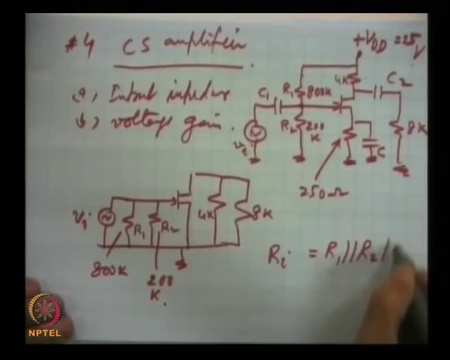 #4 CS amplifier.
a, Input impedence
b, voltage gain.
+VDD=25V
4K
C1
R1
800K
C2
R2
200
K
8K
C
Vi
250Ω
Vi
R1
R2
4K
8K
800K
200
K.
Ri = R1||R2|
NPTEL